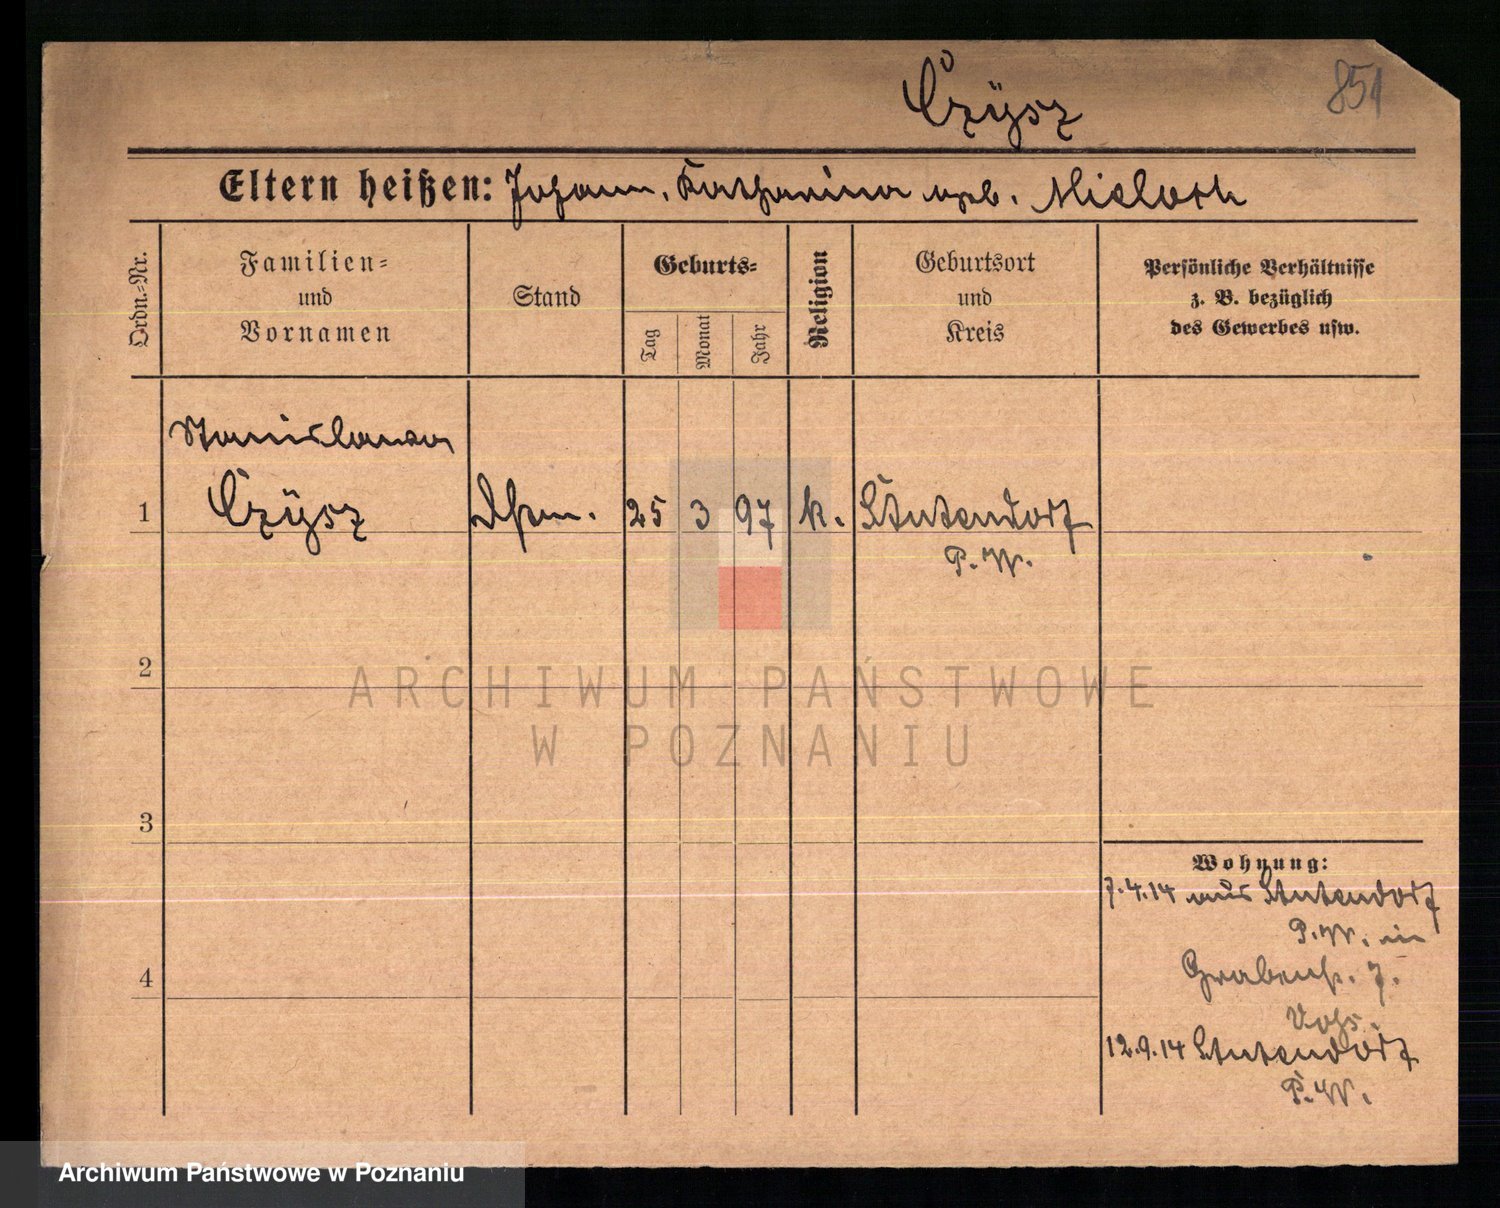 Czÿsz
851
Eltern heißen: Johann, Katharina geb. Mieloch
Ordn.=Nr.
Familien=
und
Vornamen
Stand
Geburts=
Tag
Monat
Jahr
Religion
Geburtsort
und
Kreis
Persönliche Verhältnisse
z. B. bezüglich
des Gewerbes usw.
Stanislawa
1 Czÿsz Dhm. 25 3 97 k. Stutendorf
P. W.
2
3
4
Wohnung:
7.4.14 aus Stutendorf
P. W. in
Grabenstr. 7.
12.9.14 Stutendorf
P. W.
ARCHIWUM PAŃSTWOWE
W POZNANIU
Archiwum Państwowe w Poznaniu